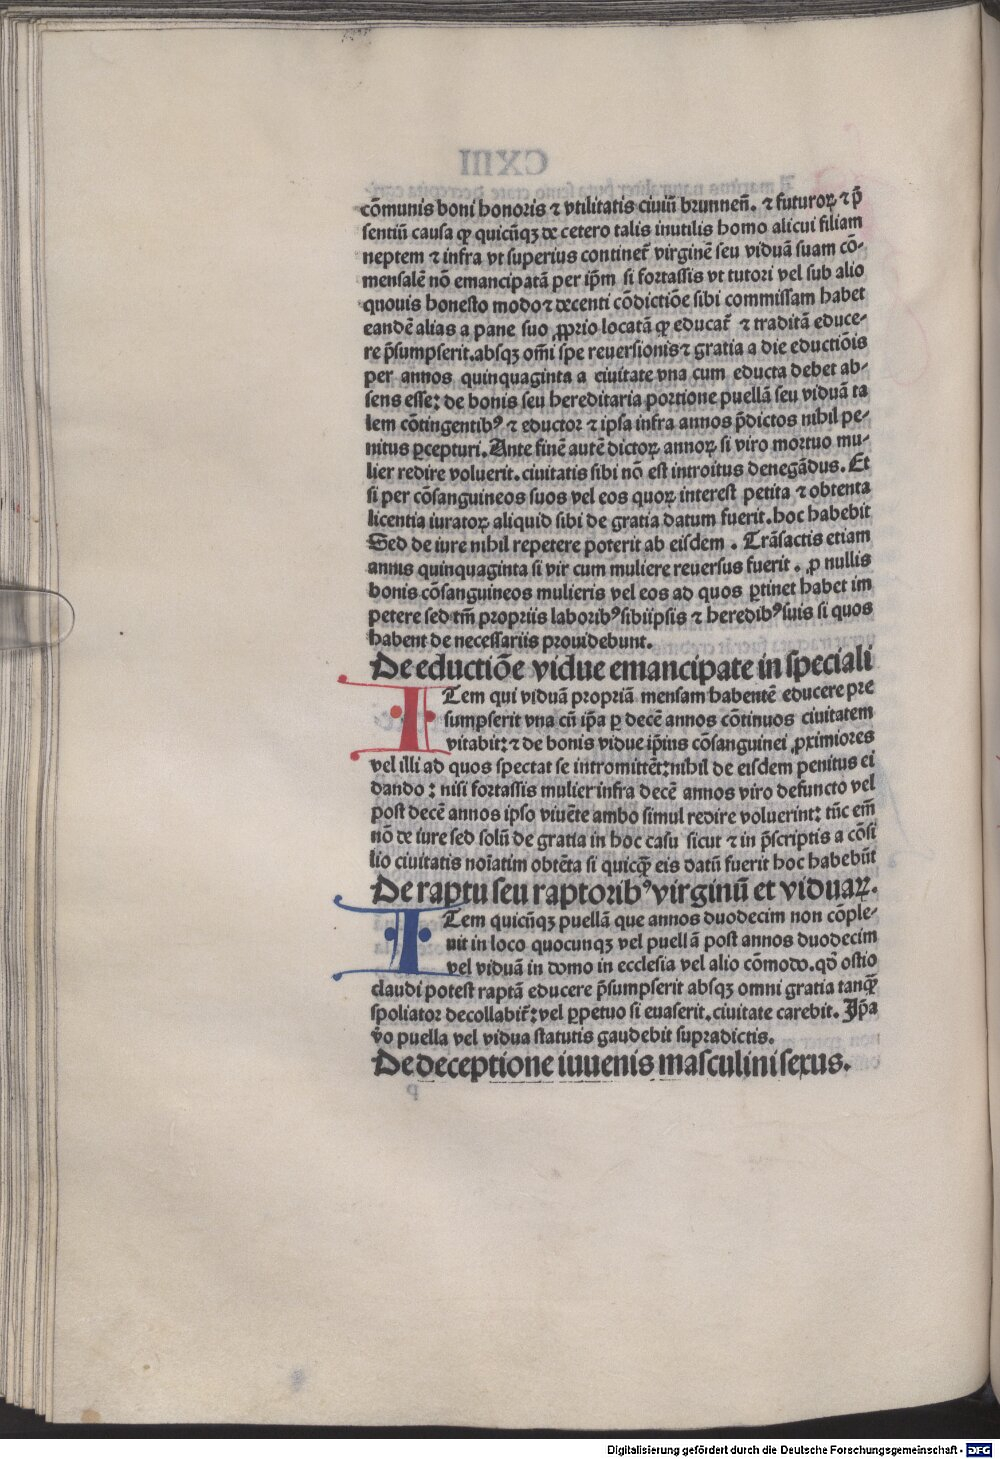 cōmunis boni honoris ⁊ vtilitatis ciuiū brunneñ. ⁊ futuroꝝ ⁊ p̄
sentiū causa ꝙ quicūqꝫ de cetero talis inutilis homo alicui filiam
neptem ⁊ infra vt superius continet᷑ virginē seu viduā suam cō-
mensalē nō emancipatā per ip̄m si fortassis vt tutori vel sub alio
quouis honesto modo ⁊ decenti cōdictiōe sibi commissam habet
eandē alias a pane suo ꝓprio locatā ꝙ educat᷑ ⁊ traditā educe-
re p̄sumpserit. absqꝫ om̄i spe reuersionis ⁊ gratia a die eductiōis
per annos quinquaginta a ciuitate vna cum educta debet ab-
sens esse: de bonis seu hereditaria portione puellā seu viduā ta
lem cōtingentibꝰ ⁊ eductor ⁊ ipsa infra annos p̄dictos nihil pe-
nitus ꝑcepturi. Ante finē autē dictoꝝ annoꝝ si viro mortuo mu-
lier redire voluerit. ciuitatis sibi nō est introitus denegādus. Et
si per cōsanguineos suos vel eos quoꝝ interest petita ⁊ obtenta
licentia iuratoꝝ aliquid sibi de gratia datum fuerit. hoc habebit
Sed de iure nihil repetere poterit ab eisdem . Trāsactis etiam
annis quinquaginta si vir cum muliere reuersus fuerit . ꝓ nullis
bonis cōsanguineos mulieris vel eos ad quos ꝑtinet habet im
petere sed tm̄ propriis laboribꝰ sibiipsis ⁊ heredibꝰ suis si quos
habent de necessariis prouidebunt.
De eductiōe vidue emancipate in speciali
ITem qui viduā propriā mensam habentē educere pre
sumpserit vna cū ip̄a ꝑ decē annos cōtinuos ciuitatem
vitabit: ⁊ de bonis vidue ip̄ius cōsanguinei ꝓximiores
vel illi ad quos spectat se intromittēt: nihil de eisdem penitus ei
dando : nisi fortassis mulier infra decē annos viro defuncto vel
post decē annos ipso viuēte ambo simul redire voluerint: tūc em̄
nō de iure sed solū de gratia in hoc casu sicut ⁊ in p̄scriptis a cōsi
lio ciuitatis noīatim obtēta si quicq̄ eis datū fuerit hoc habebūt
De raptu seu raptoribꝰ virginū et viduaꝝ.
ITem quicūqꝫ puellā que annos duodecim non cōple-
uit in loco quocunqꝫ vel puellā post annos duodecim
vel viduā in domo in ecclesia vel alio cōmodo. qd̄ ostio
claudi potest raptā educere p̄sumpserit absqꝫ omni gratia tanq̄
spoliator decollabit᷑: vel ꝑpetuo si euaserit. ciuitate carebit. Ip̄a
v̄o puella vel vidua statutis gaudebit supradictis.
De deceptione iuuenis masculini sexus.
Digitalisierung gefördert durch die Deutsche Forschungsgemeinschaft - DFG